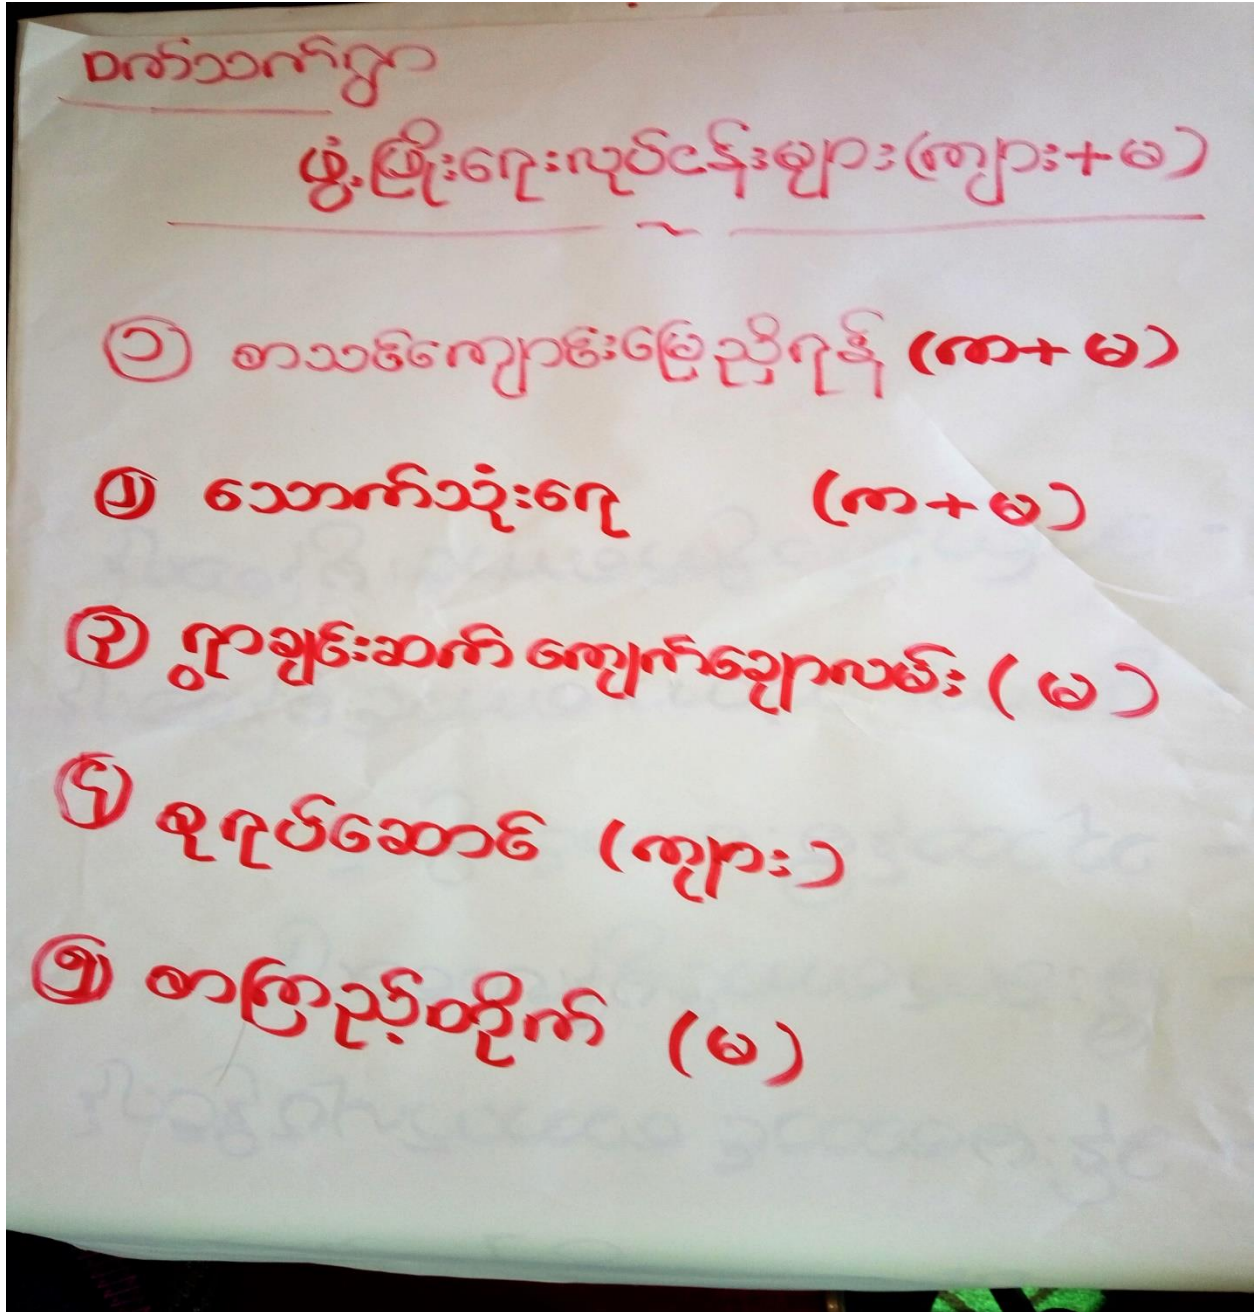 ဖွံ့ဖြိုးရေးလုပ်ငန်းများ(ကျား+မ)
၁ စာသင်ကျောင်းမြေညှိရန် (ကာ+မ)
၂ သောက်သုံးရေ (ကာ+မ)
၃ ရွာချင်းဆက် ကျောက်ချောလမ်း (မ)
၄ စုရပ်ဆောင် (ကျား)
၅ စာကြည့်တိုက် (မ)